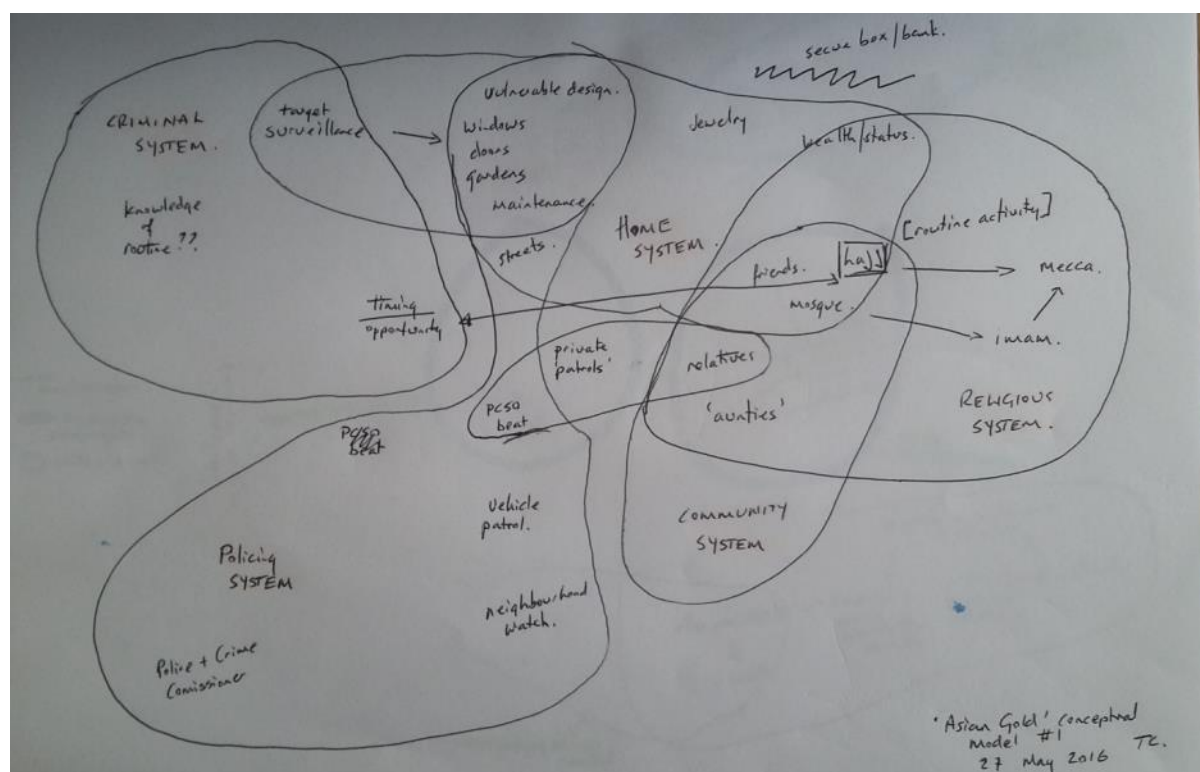 secure box/bank.
CRIMINAL
SYSTEM.
knowledge
of
routine??
target
surveillance
vulnerable design.
windows
doors
gardens
maintenance.
streets.
Jewelry
wealth/status.
HOME
SYSTEM.
[routine activity]
friends.
hajj
mecca.
mosque.
imam.
timing
opportunity
private
'patrols'
relatives
RELIGIOUS
SYSTEM.
PCSO
beat
'aunties'
PCSO
beat
vehicle
patrol.
COMMUNITY
SYSTEM
Policing
SYSTEM
neighbourhood
watch.
Police + Crime
Comissioner
'Asian Gold' conceptual
model #1
27 May 2016 TC.